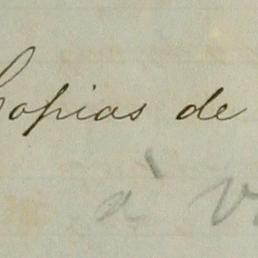 Copias de
à